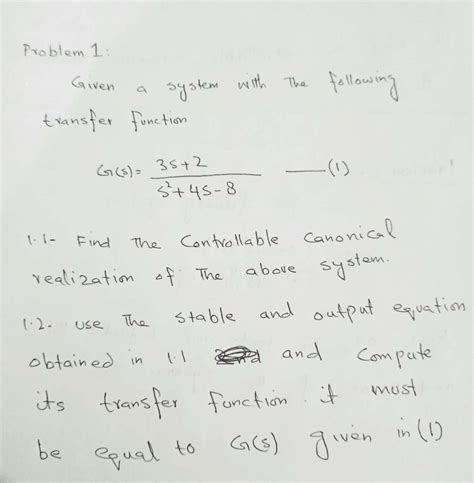 Problem 1:
Given a system with The following
transfer function
G(s) = 3s+2 / s²+4s-8 —(1)
1.1- Find The Controllable Canonical
realization of The above system.
1.2. use The stable and output equation
obtained in 1.1 and Compute
its transfer function. it must
be equal to G(s) given in (1)